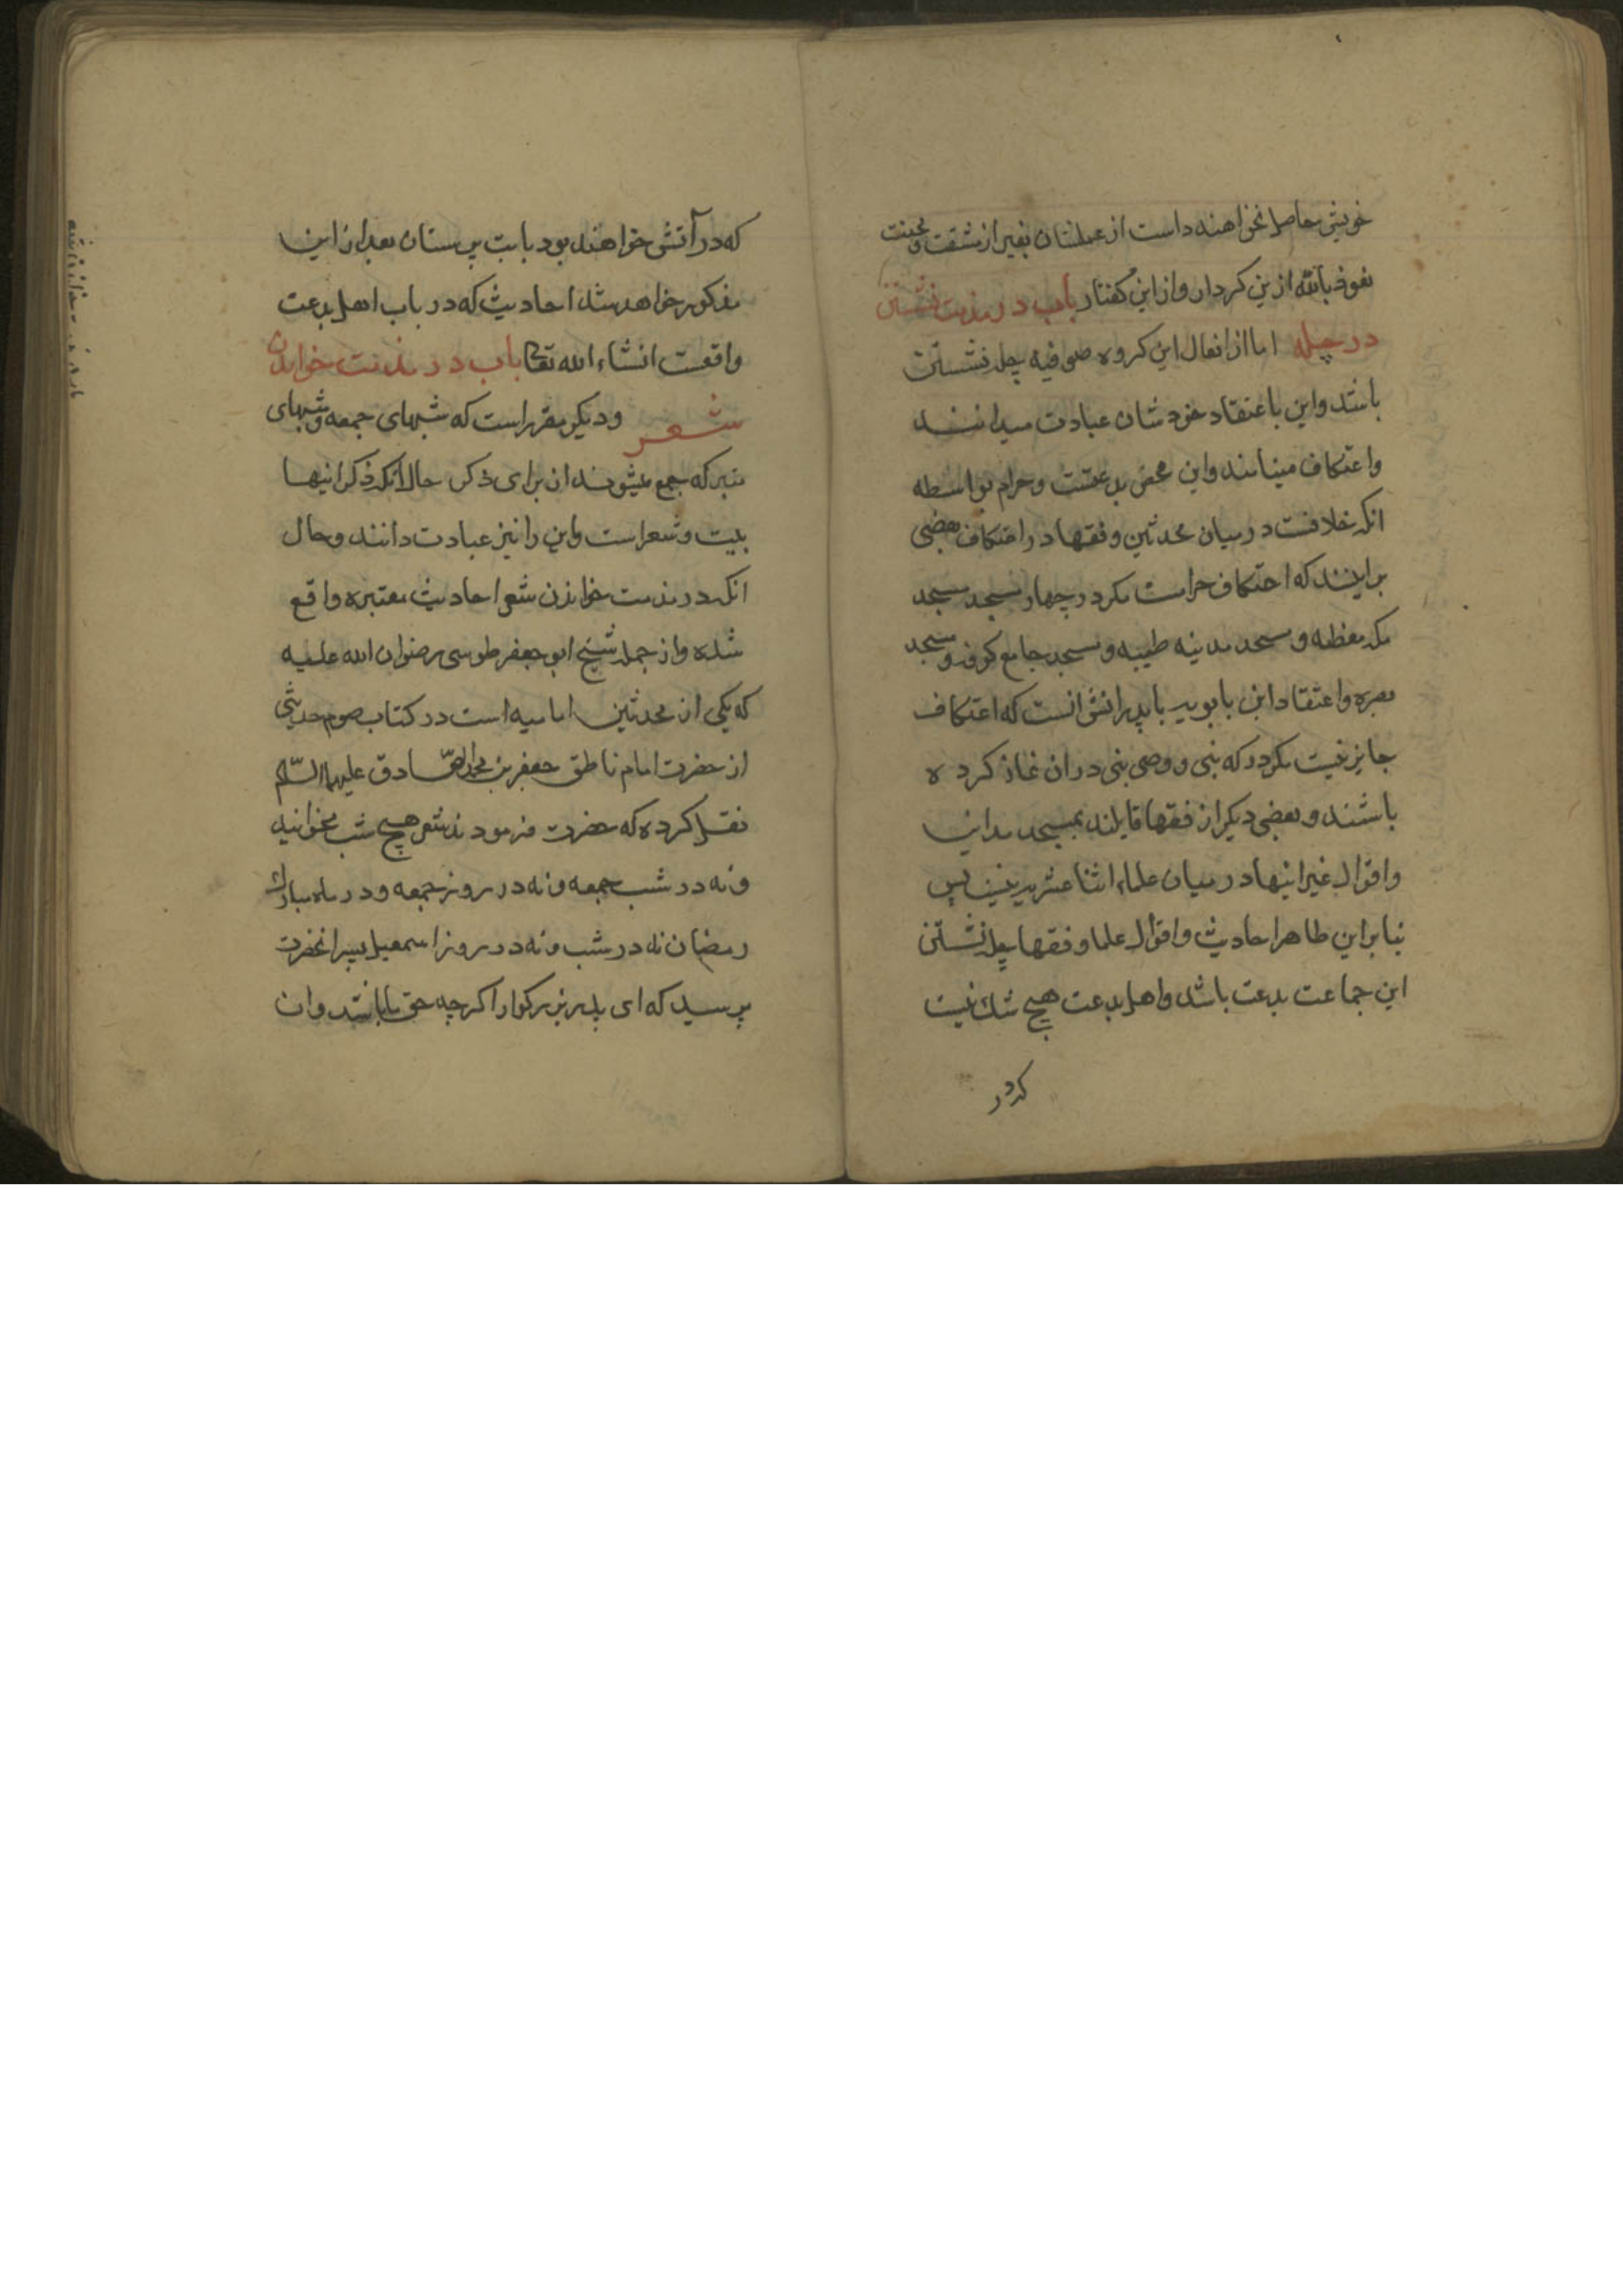 خویش حاصل نخواهند داشت از عملشان بغیر از مشقت و محنت
نعوذ بالله ازین کردار و از این گفتار باب در مذمت نشستن
در چله اما از افعال این کروه صوفیه چله نشستن
باشد و این باعتقاد خودشان عبادت میدانند
و اعتکاف مینامند و این محض بدعتست و حرام بواسطه
انکه خلافست در میان محدثین و فقها در اعتکاف بعضی
براینند که اعتکاف حرامست مکر در چهار مسجد مسجد
مکه معظمه و مسجد مدینه طیبه و مسجد جامع کوفه و مسجد
بصره و اعتقاد ابن بابویه با پدرانش انست که اعتکاف
جایز نیست مکر در که نبی و وصی نبی در ان نماز کرده
باشند و بعضی دیکر از فقها قایلند بمسجد مداین
و اقوال غیر اینها در میان علماء اثنا عشریه نیست پس
بنا براین ظاهر احادیث و اقوال علما و فقها چله نشستن
این جماعت بدعت باشد و اهل بدعت هیچ شک نیست
که در
که در آتش خواهند بود با بت پرستان بعد از این
مذکور خواهد شد احادیثی که در باب اهل بدعت
واقعست انشاء الله تعالی باب در مذمت خواندن
شعر و دیکر مقرر است که شبهای جمعه و شبهای
متبرکه جمع میشوند از برای ذکر حال انکه ذکر اینها
بیت و شعر است و این را نیز عبادت دانند و حال
انکه در مذمت خواندن شعر احادیث معتبره واقع
شده و از جمله شیخ ابو جعفر طوسی رضوان الله علیه
که یکی از محدثین امامیه است در کتاب صوم حدیثی
از حضرت امام ناطق جعفر بن محمد الصادق علیهما السلام
نقل کرده که حضرت فرمودند شعر هیچ شب مخوانید
و نه در شب جمعه و نه در روز جمعه و در ماه مبارک
رمضان نه در شب و نه در روز اسمعیل پسر انحضرت
پرسید که ای پدر بزرکوار اکرچه حق ما باشد و ان